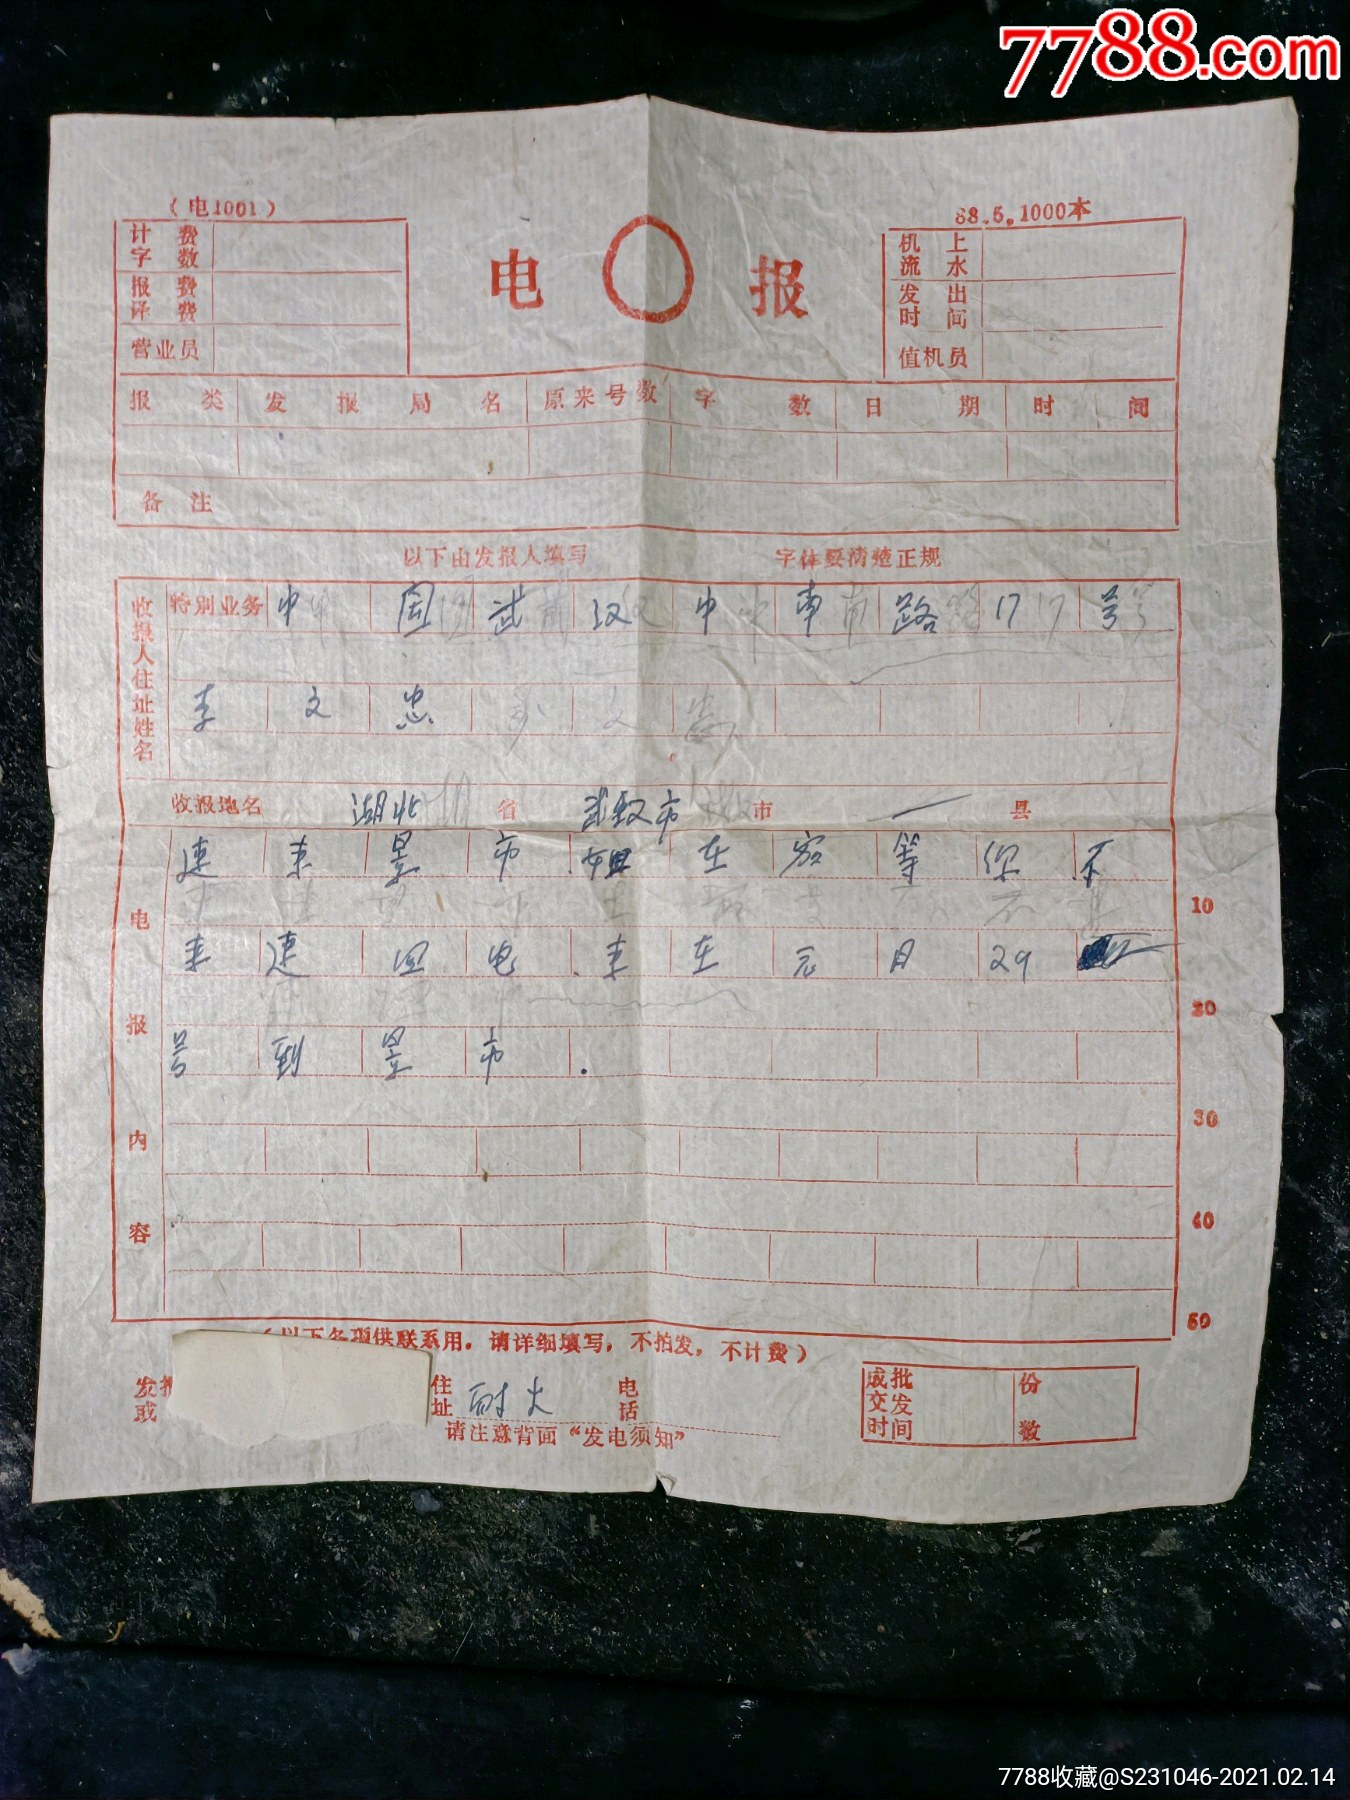 7788.com
（电1001）
88.5.1000本
计费字数
报费译费
营业员
电报
机上流水
发出时间
值机员
报类 发报局名 原来号数 字数 日期 时间
备注
以下由发报人填写 字体要清楚正规
收报人住址姓名
特别业务 中国武汉中南路17号
李文忠
收报地名 湖北省 武汉市市 一县
电报内容
速来昱市姐在家等你不
10
来速回电.来在元月29
20
号到昱市.
30
40
50
（以下各项供联系用，请详细填写，不拍发，不计费）
发报
或
住址 耐火 电话
请注意背面“发电须知”
成批交发时间 份数
7788收藏@S231046-2021.02.14